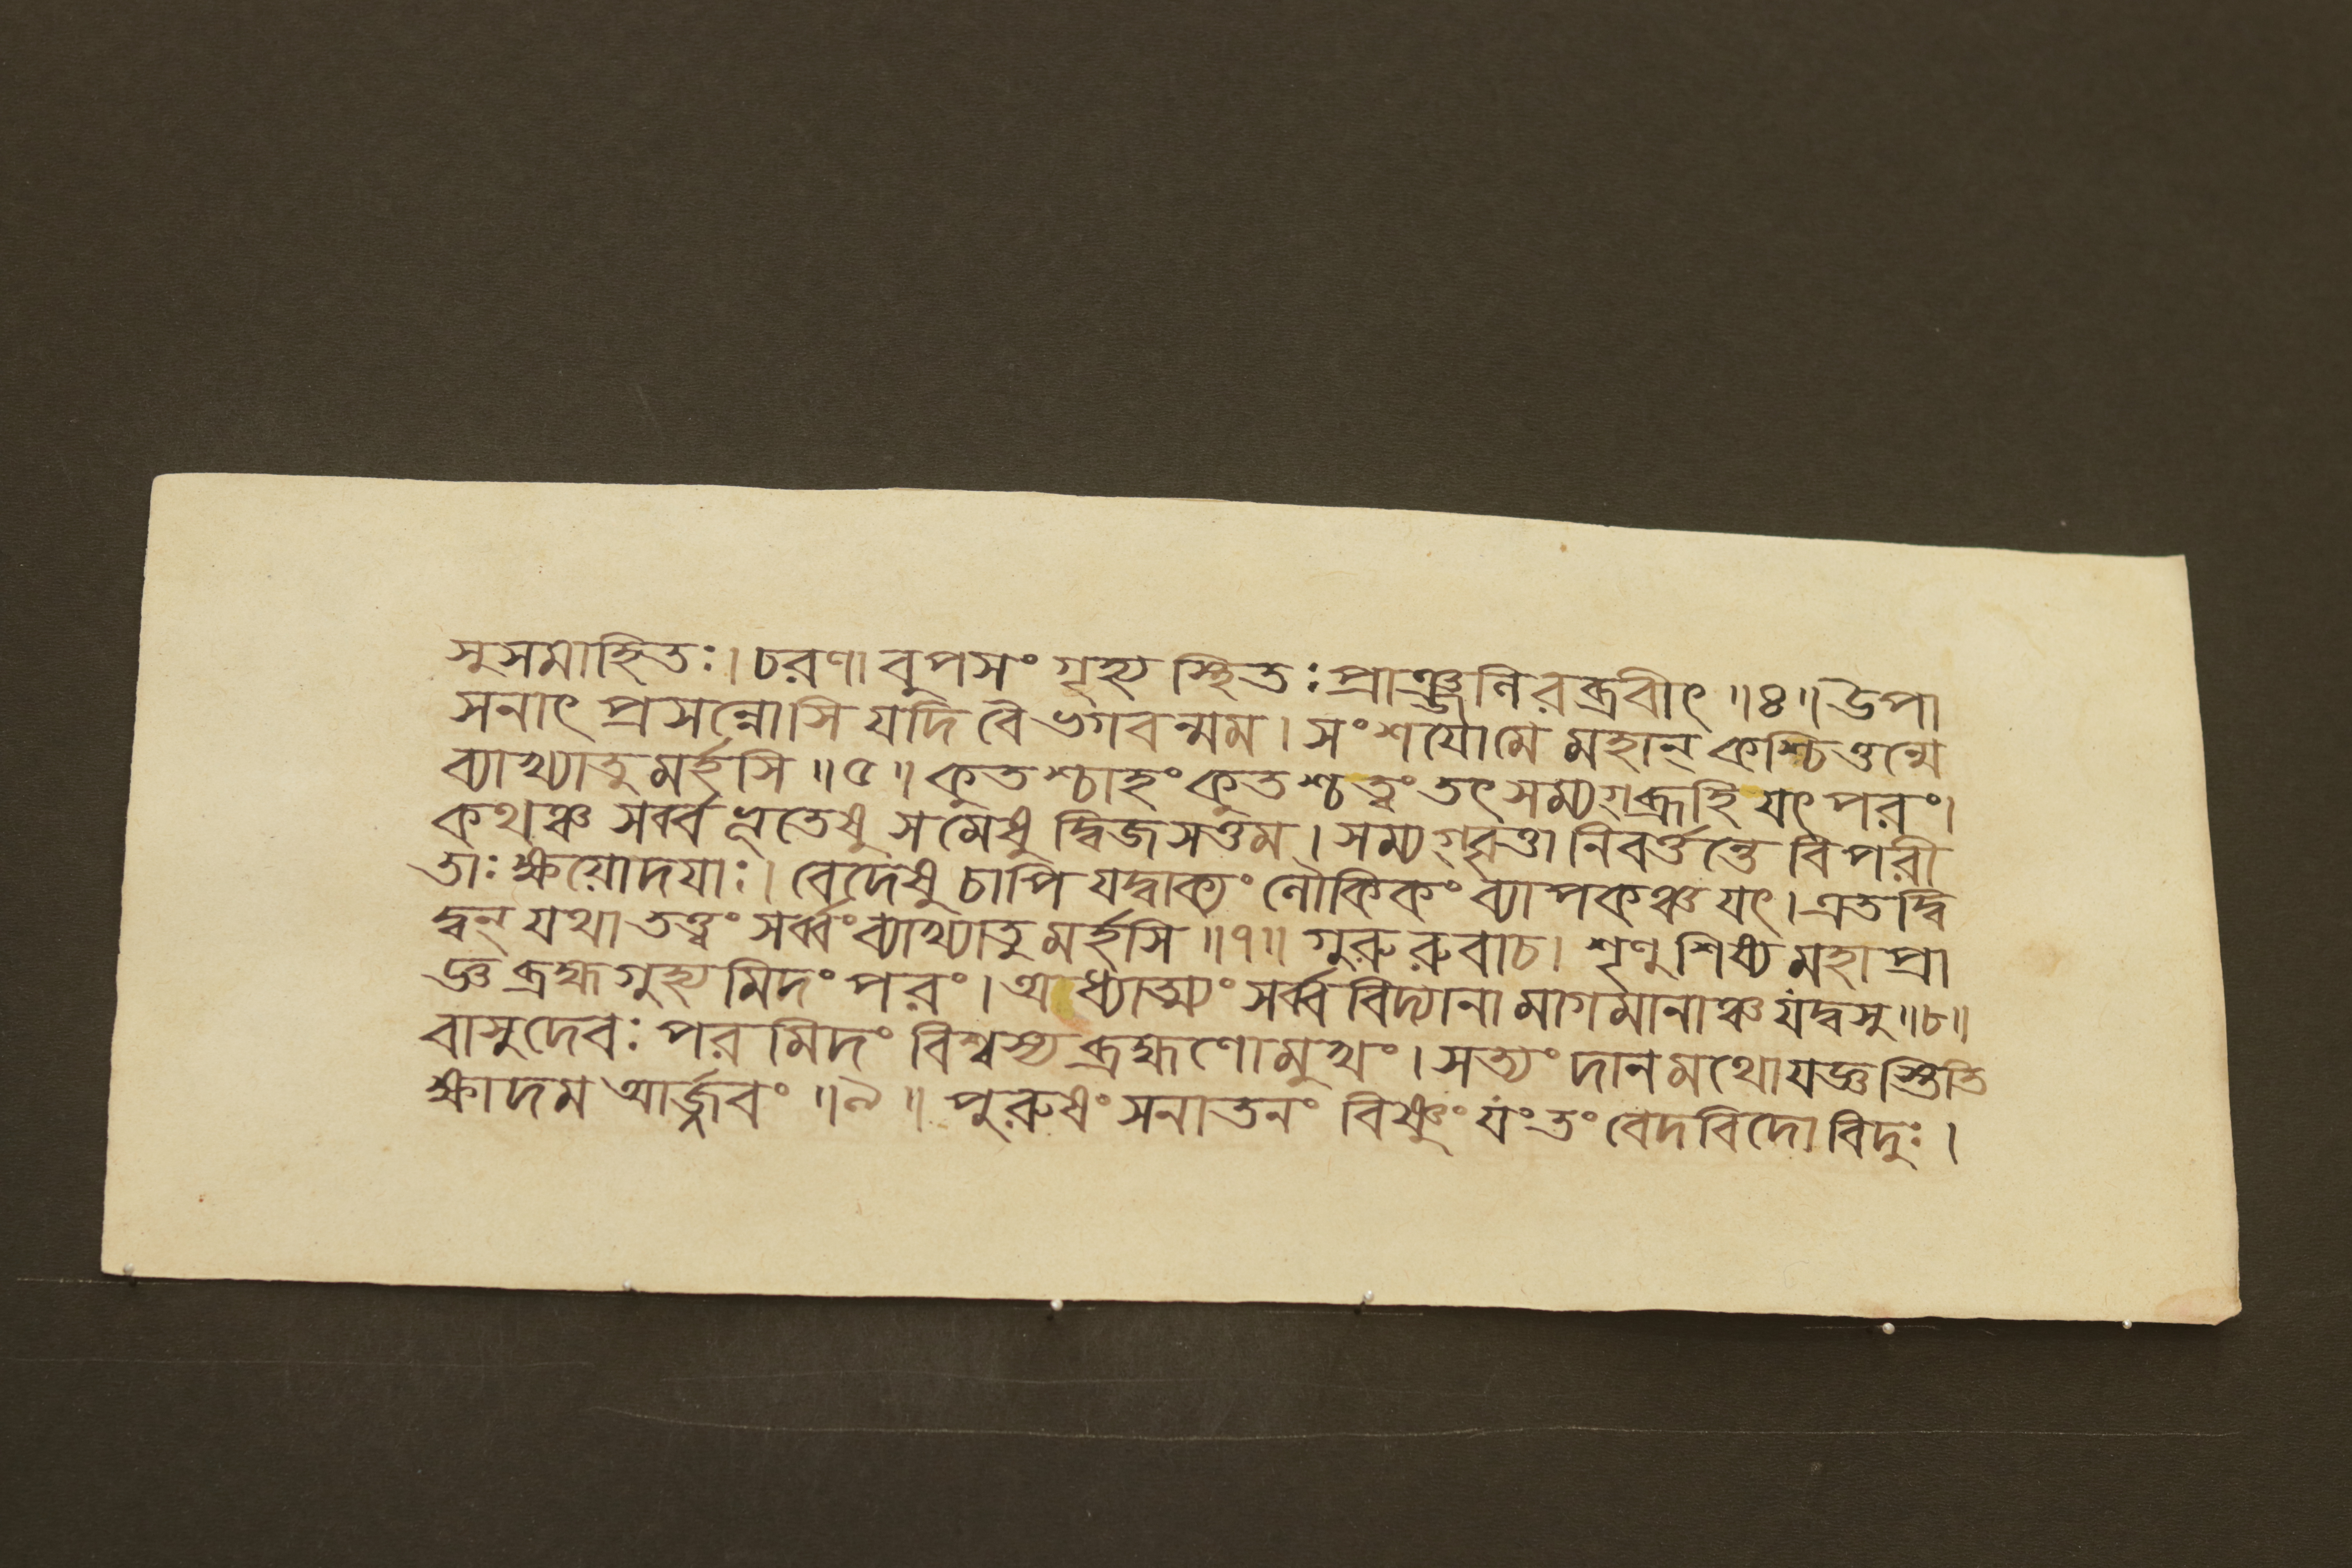 সুসমাহিতঃ। চরণাবুপসংগৃহ্য স্থিতঃ প্রাঞ্জলিরব্রবীৎ ॥৪॥ উপা
সনাৎ প্রসন্নোসি যদি বৈ ভগবন্মম। সংশয়োমে মহান্ কশ্চিত্তন্মে
ব্যাখ্যাতুমর্হসি ॥৫॥ কুতশ্চাহং কুতশ্চ ত্বং তৎ সম্যগ্ব্রূহি যৎ পরং।
কথঞ্চ সর্ব্বভূতেষু সমেষু দ্বিজসত্তম। সম্যগ্বৃত্তা নিবর্ত্তন্তে বিপরী
তাঃ ক্ষয়োদয়াঃ। বেদেষু চাপি যদ্বাক্যং লৌকিকং ব্যাপকঞ্চ যৎ। এতদ্বি
দ্বন্ যথা তত্ত্বং সর্ব্বং ব্যাখ্যাতুমর্হসি ॥৭॥ গুরুরুবাচ। শৃণু শিষ্য মহাপ্রা
জ্ঞ ব্রহ্মগুহ্যমিদং পরং। অধ্যাত্ম্যং সর্ব্ববিদ্যানামাগমানাঞ্চ যদ্বসু ॥৮॥
বাসুদেবঃ পরমিদং বিশ্বস্য ব্রহ্মণো মুখং। সত্যং দানমথো যজ্ঞস্তিতি
ক্ষাদম আর্জ্জবং ॥৯॥ পুরুষং সনাতনং বিষ্ণুং যং তং বেদবিদো বিদুঃ।